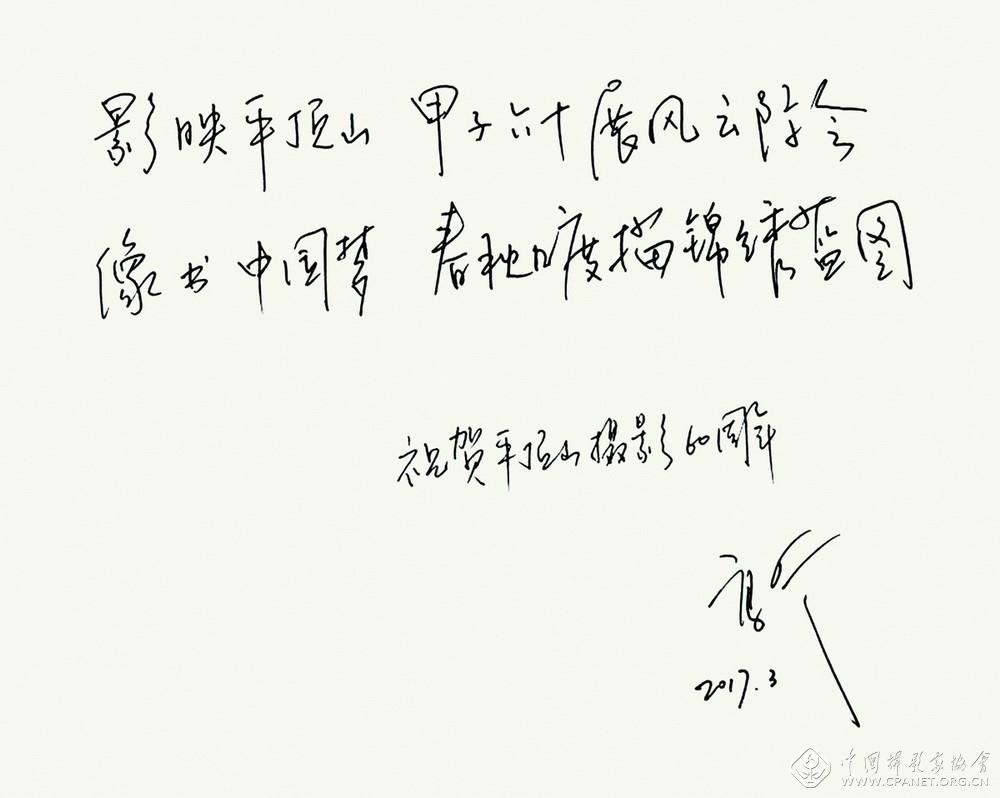 影映平顶山 甲子六十展风云际会
像书中国梦 春秋几度描锦绣蓝图
祝贺平顶山摄影60周年
2017.3
中国摄影家協會
WWW.CPANET.ORG.CN